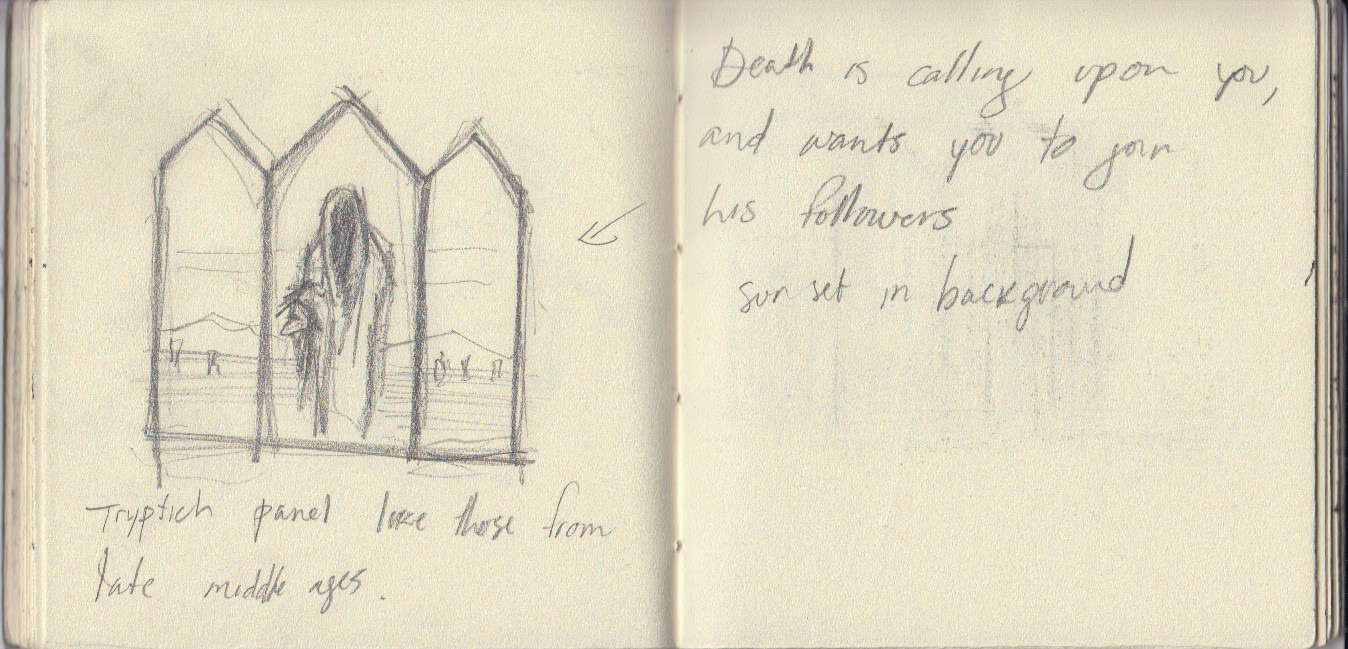 Tryptich panel like those from
late middle ages.
Death is calling upon you,
and wants you to join
his followers
sun set in background